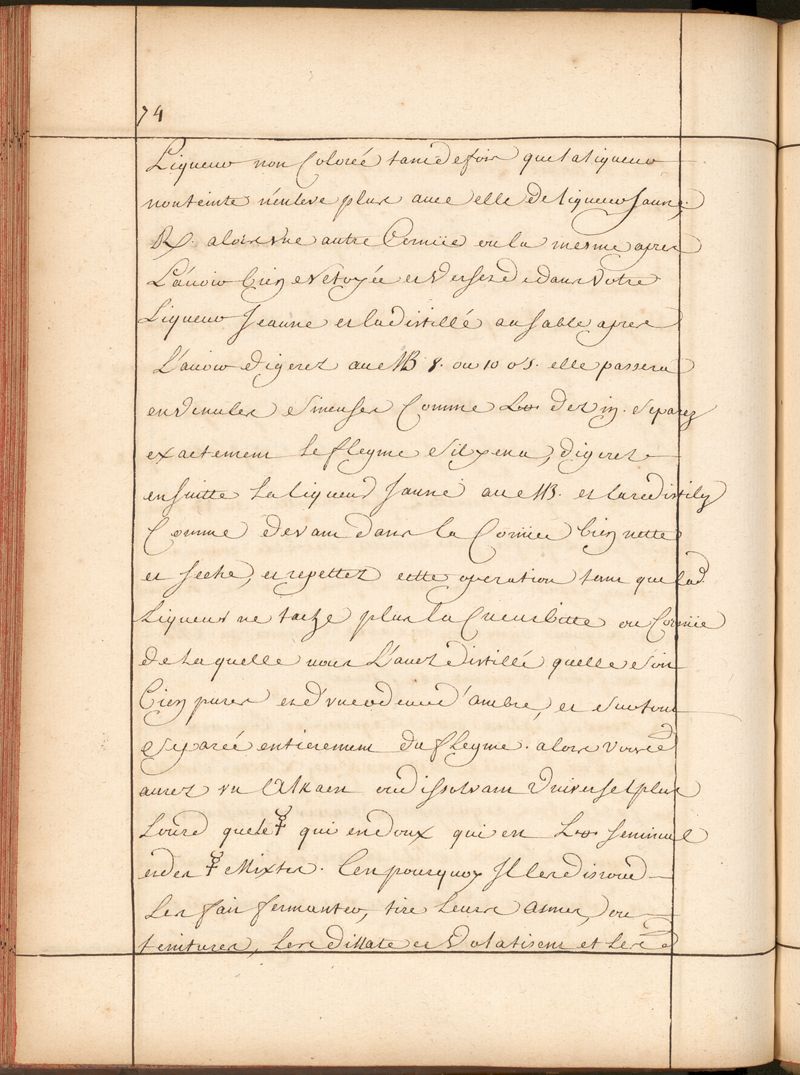 74
Liqueur non Colorée tant de fois que la liqueur
non teinte n'enleve plus avec elle de liqueur Jaune,
R. alors vne autre Cornüe ou la mesme apres
L'avoir bien nettoyée et versé dedans Votre
Liqueur Jeaune et la distillé au sable apres
L'avoir digerez au MB 8. ou 10 J. elle passera
en Venules comme de vin. separez
exactement le flegme s'il y en a, digerez
ensuitte La liqueur Jaune au MB. et la redistilez
Comme devant dans la Cornüe bien nette
et seche, et repettez cette operation tant que lad.
Liqueur ne tache plus la Cucurbitte ou Cornüe
de Laquelle vous L'avez distillé quelle soit
bien pures et d'vne odeur d'ambre, et surtout
separée entierement du flegme. alors vous
aurez vn Alkaest ou dissolvant Vniversel plus
Lourd que le ☿ qui est doux qui est seminal
et des ☿ Mixtes. C'est pourquoy Il les dissoud
Les fait fermenter, tire Leurs Asmes, ou
teintures, Les dillate et Volatisent et Les